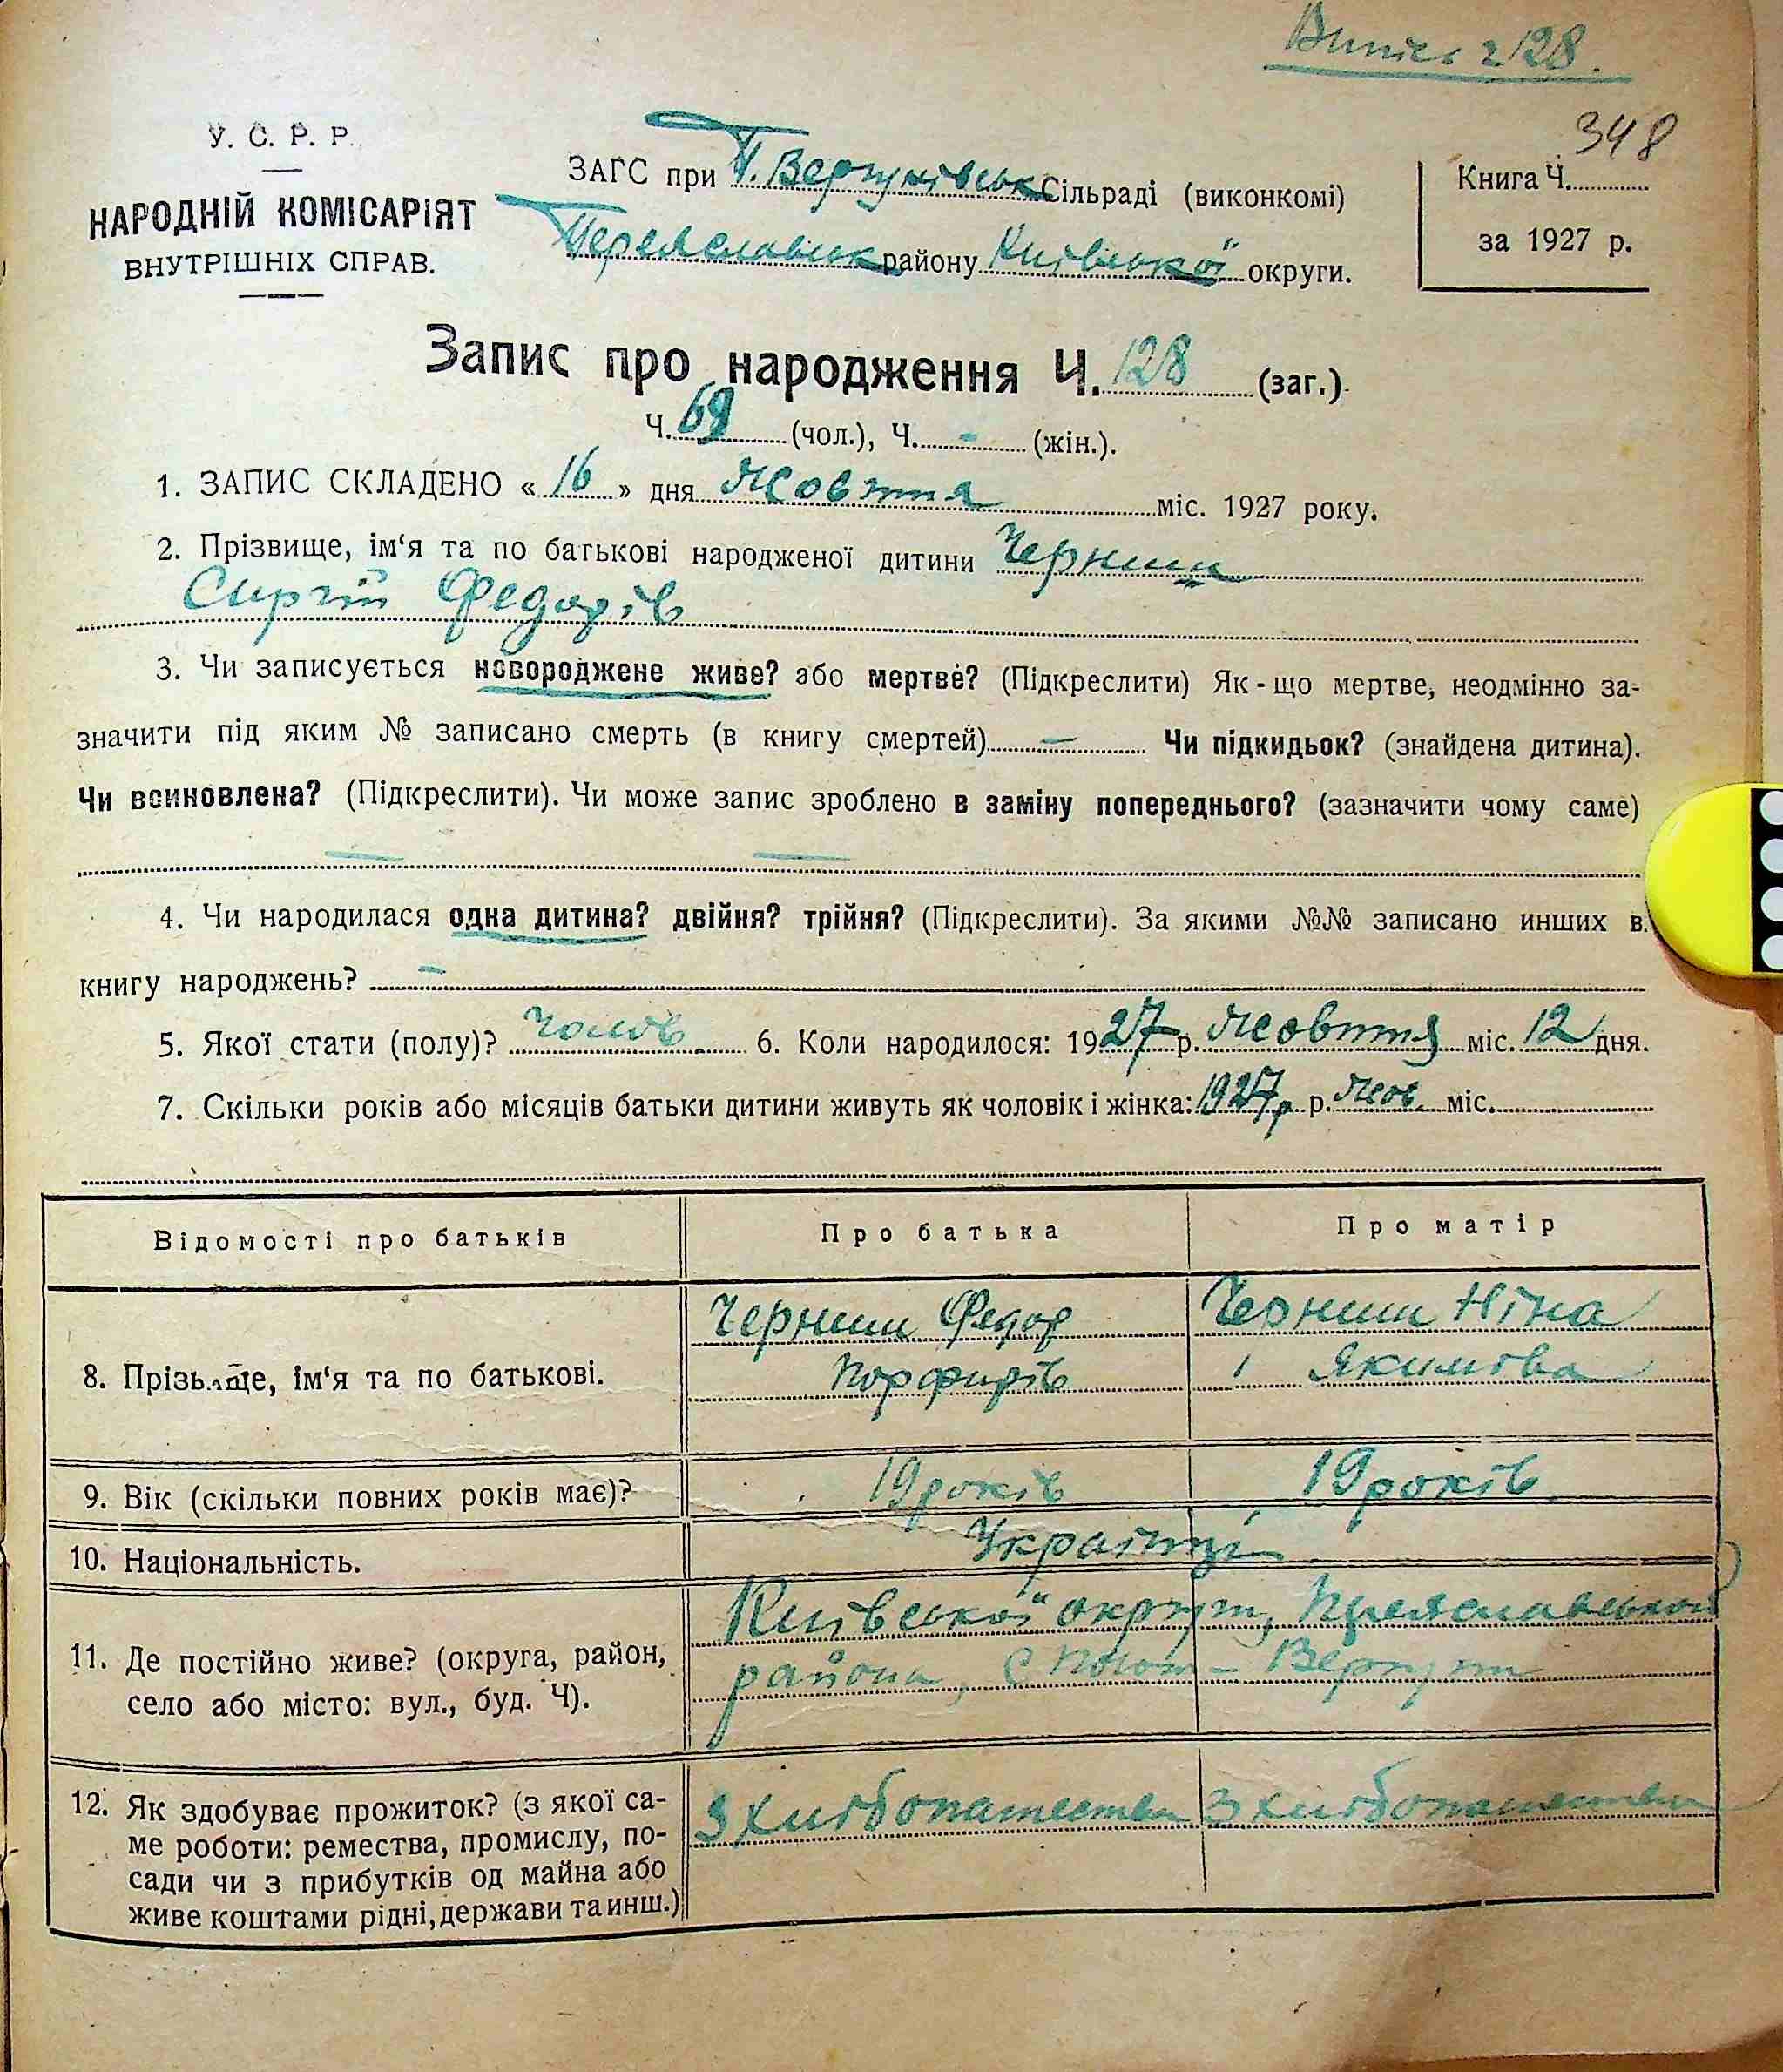 Випись 128.
348
У. С. Р. Р.
НАРОДНІЙ КОМІСАРІЯТ
ВНУТРІШНІХ СПРАВ.
ЗАГС при П. Вергунівськ Сільраді (виконкомі)
Переяславськ району Київської округи.
Книга Ч.
за 1927 р.
Запис про народження Ч. 128 (заг.).
Ч. 69 (чол.), Ч. - (жін.).
1. ЗАПИС СКЛАДЕНО « 16 » дня Жовтня міс. 1927 року.
2. Прізвище, ім‘я та по батькові народженої дитини Черниш
Сиргій Федорів
3. Чи записується новороджене живе? або мертве? (Підкреслити) Як - що мертве, неодмінно за-
значити під яким № записано смерть (в книгу смертей) — Чи підкидьок? (знайдена дитина).
Чи всиновлена? (Підкреслити). Чи може запис зроблено в заміну попереднього? (зазначити чому саме)
— —
4. Чи народилася одна дитина? двійня? трійня? (Підкреслити). За якими №№ записано инших в
книгу народжень? —
5. Якої стати (полу)? Чолов. 6. Коли народилося: 1927 р. Жовтня міс. 12 дня.
7. Скільки років або місяців батьки дитини живуть як чоловік і жінка: 1927р р. Жов. міс.
Відомості про батьків Про батька Про матір
8. Прізвище, ім‘я та по батькові.
Черниш Федор Черниш Ніна
Порфирів Якимова
9. Вік (скільки повних років має)? 19 років 19 років
10. Національність. Українці
11. Де постійно живе? (округа, район,
село або місто: вул., буд. Ч).
Київської округи, Переяславської
района, с Погот - Вергуни
12. Як здобуває прожиток? (з якої са-
ме роботи: ремества, промислу, по-
сади чи з прибутків од майна або
живе коштами рідні, держави та инш.)
З хлібопашества З хлібопашества